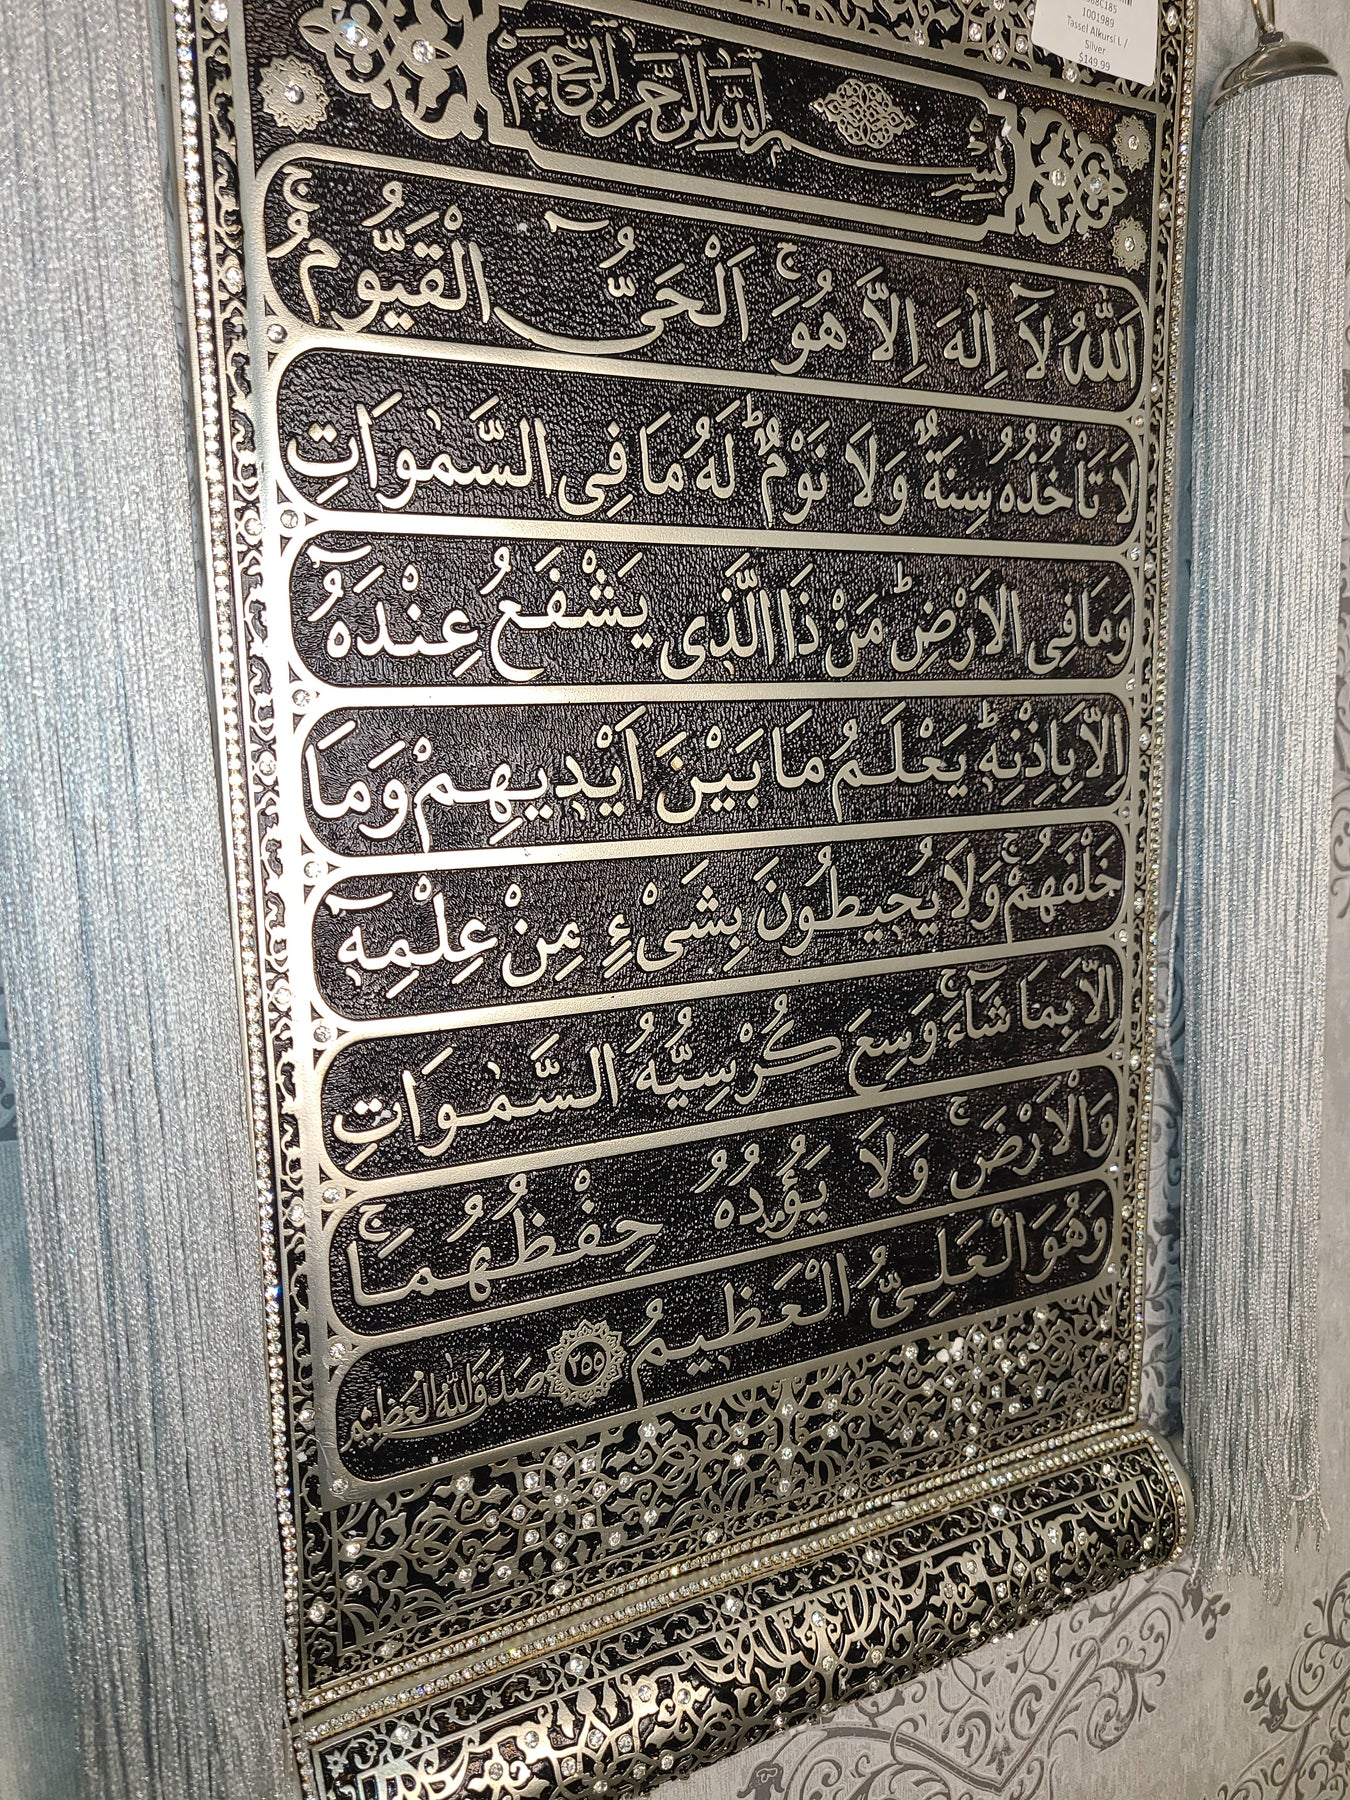 968C185
1001989
Tassel Alkursi L /
Silver
$149.99
بِسْمِ اللّٰهِ الرَّحْمٰنِ الرَّحِيمِ
اَللّٰهُ لَآ اِلٰهَ اِلَّا هُوَۚ اَلْحَيُّ الْقَيُّومُۚ
لَا تَأْخُذُهُ سِنَةٌ وَلَا نَوْمٌۜ لَهُ مَا فِي السَّمٰوَاتِ
وَمَا فِي الْاَرْضِۜ مَنْ ذَا الَّذِي يَشْفَعُ عِنْدَهُٓ
اِلَّا بِاِذْنِهِۜ يَعْلَمُ مَا بَيْنَ اَيْدِيهِمْ وَمَا
خَلْفَهُمْۚ وَلَا يُحِيطُونَ بِشَيْءٍ مِنْ عِلْمِهِٓ
اِلَّا بِمَا شَٓاءَۚ وَسِعَ كُرْسِيُّهُ السَّمٰوَاتِ
وَالْاَرْضَۚ وَلَا يَؤُ۫دُهُ حِفْظُهُمَاۚ
وَهُوَ الْعَلِيُّ الْعَظِيمُ ٢٥٥ صَدَقَ اللّٰهُ الْعَظِيمُ